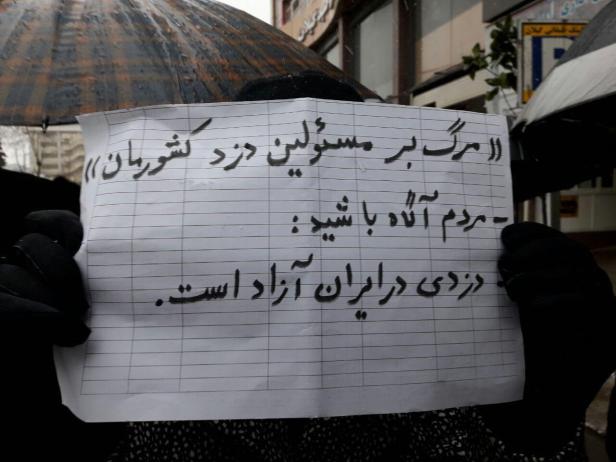 ((مرگ بر مسئولین دزد کشورمان))
- مردم آگاه باشید:
- دزدی در ایران آزاد است.